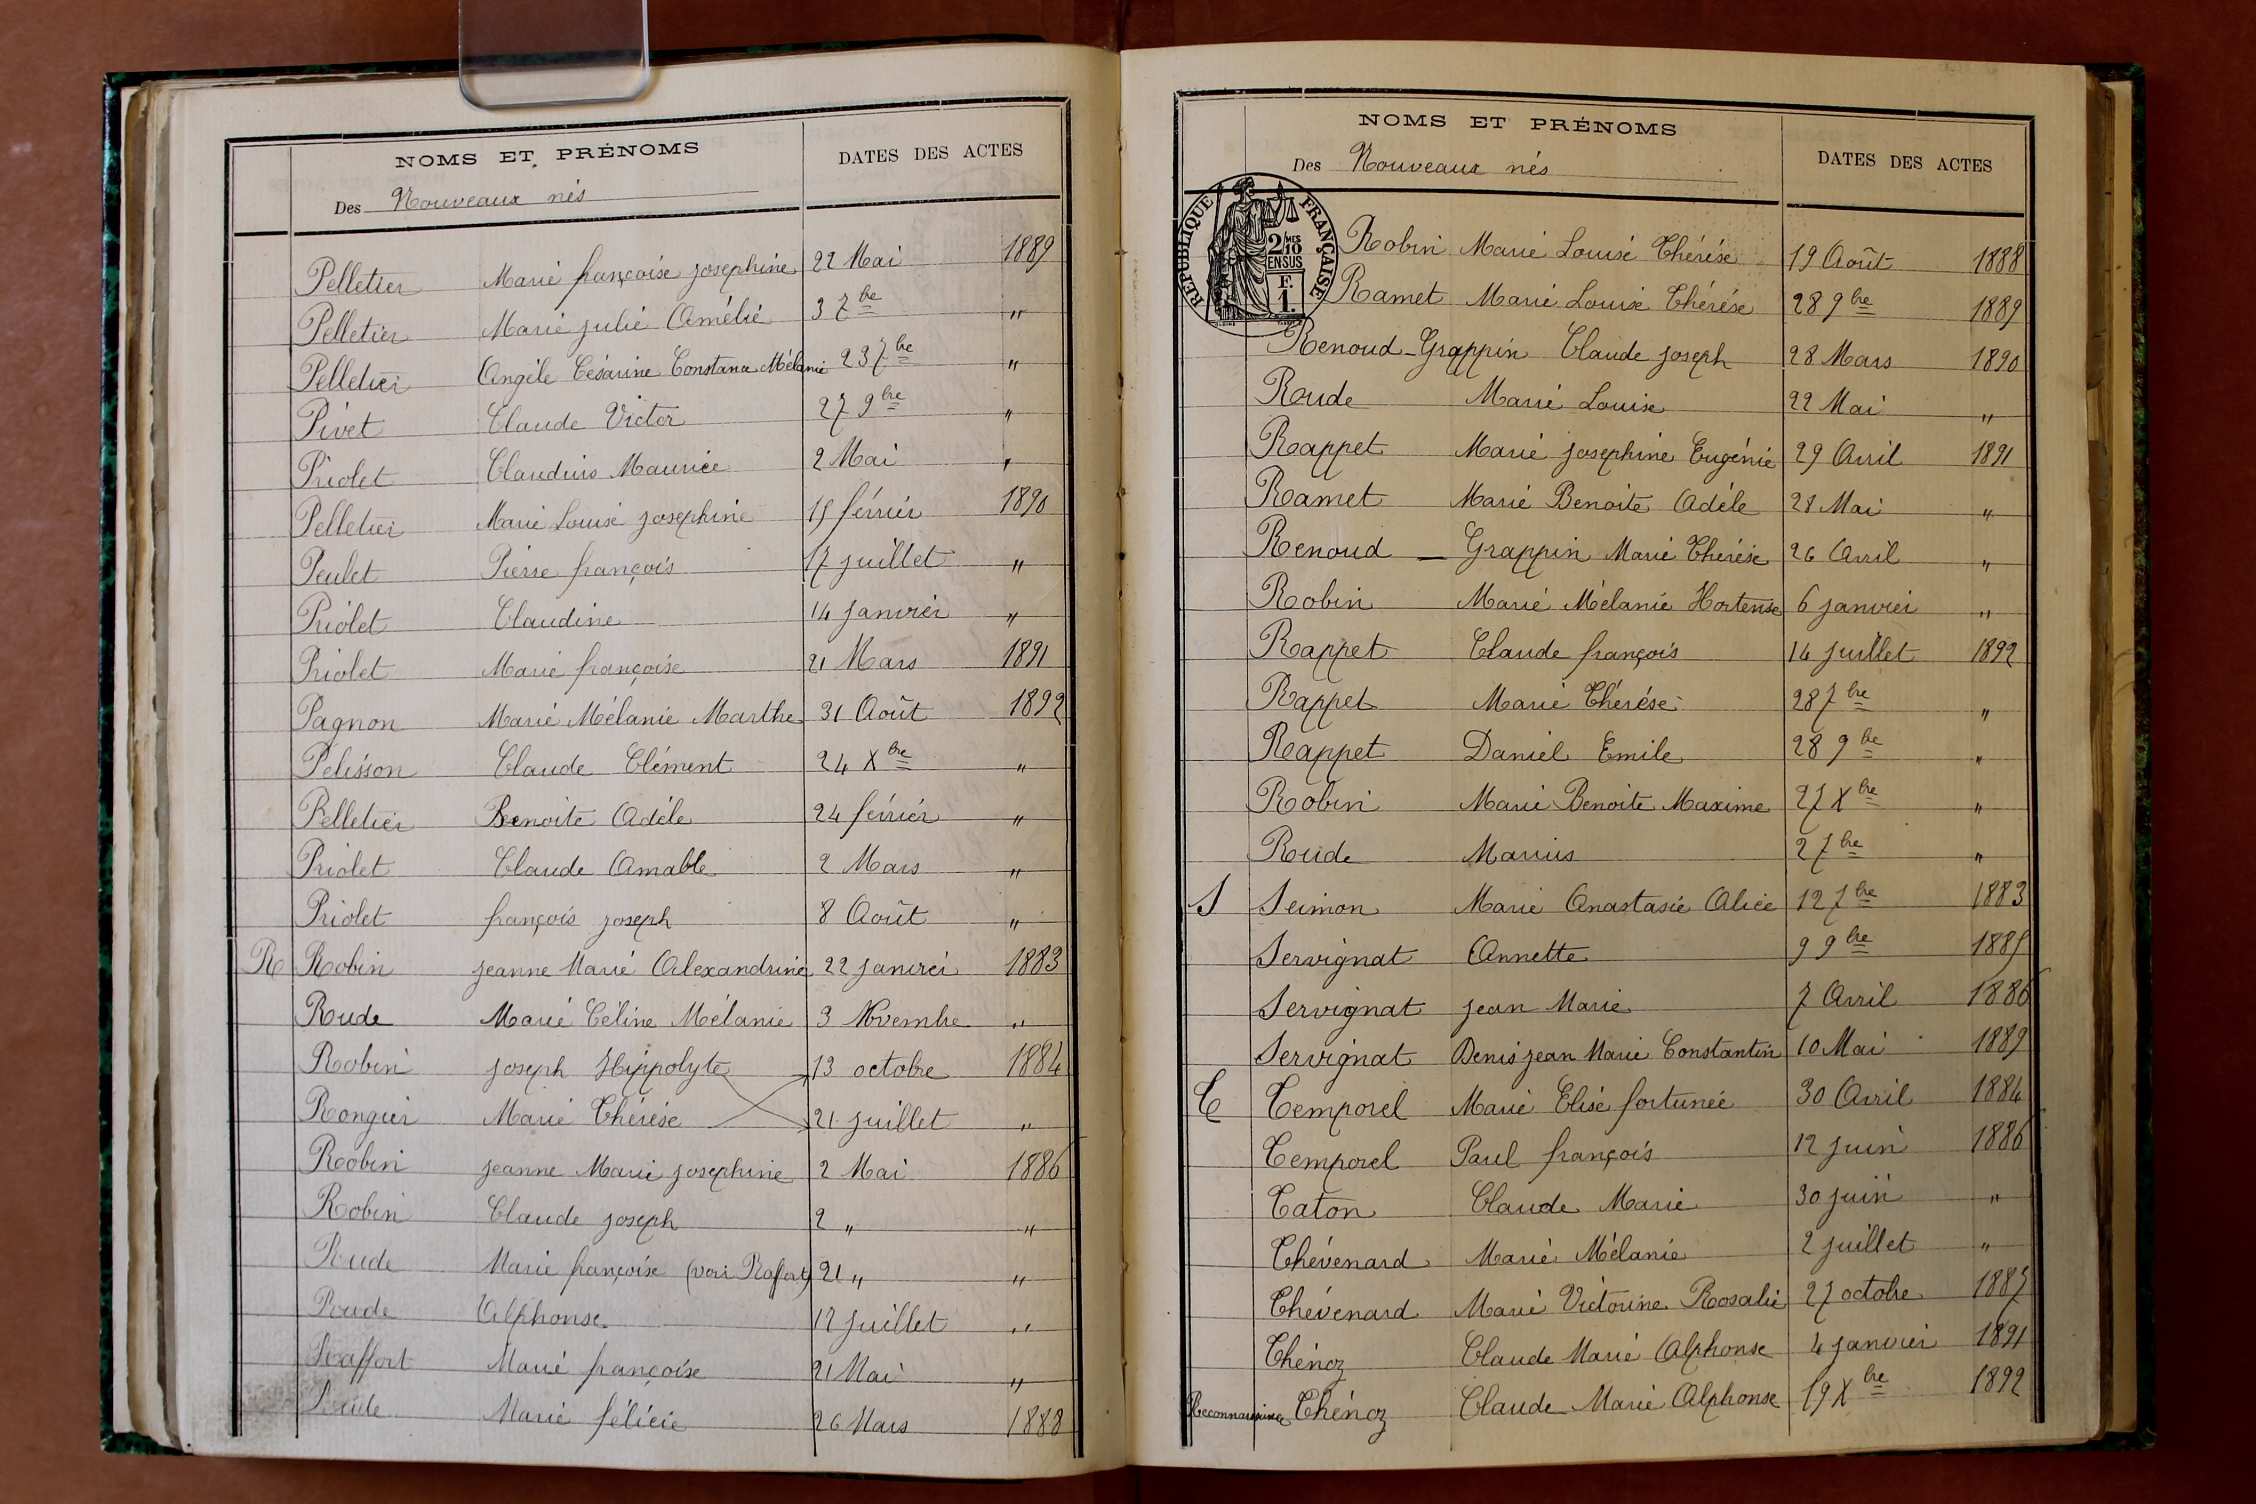 NOMS ET PRÉNOMS
Des Nouveaux nés
DATES DES ACTES
Pelletier Marie françoise josephine 22 Mai 1889
Pelletier Marie julie Amélie 3 7bre "
Pelletier Angèle Césarine Constance Mélanie 23 7bre "
Pivet Claude Victor 27 9bre "
Priolet Claudius Maurice 2 Mai "
Pelletier Marie Louise josephine 15 février 1890
Peulet Pierre françois 17 juillet "
Priolet Claudine 14 janvier "
Priolet Marie françoise 21 Mars 1891
Pagnon Marie Mélanie Marthe 31 Août 1892
Pelisson Claude Clément 24 Xbre "
Pelletier Benoite Adéle 24 février "
Priolet Claude Amable 2 Mars "
Priolet françois joseph 8 Août "
R Robin jeanne Marie Alexandrine 22 janvier 1883
Rude Marie Céline Mélanie 3 Novembre "
Robin joseph Hippolyte 13 octobre 1884
Rongier Marie Thérése 21 juillet "
Robin jeanne Marie josephine 2 Mai 1886
Robin Claude joseph 2 " "
Rude Marie françoise (voir Raffort) 21 " "
Rude Alphonse 12 juillet "
Raffort Marie françoise 21 Mai "
Rude Marie félicie 26 Mars 1888
NOMS ET PRÉNOMS
Des Nouveaux nés
DATES DES ACTES
RÉPUBLIQUE FRANÇAISE
2/10 MES
EN SUS
F.
1.
Robin Marie Louise Thérése 19 Août 1888
Ramet Marie Louise Thérése 28 9bre 1889
Renoud-Grappin Claude joseph 28 Mars 1890
Roude Marie Louise 22 Mai "
Rappet Marie josephine Eugénie 29 Avril 1891
Ramet Marie Benoite Adéle 28 Mai "
Renoud - Grappin Marie Thérése 26 Avril "
Robin Marie Mélanie Hortense 6 janvier "
Rappet Claude françois 14 juillet 1892
Rappet Marie Thérése 28 7bre "
Rappet Daniel Emile 28 9bre "
Robin Marie Benoite Maxime 27 Xbre "
Rude Marius 2 7bre "
S Seimon Marie Anastasie Alice 12 7bre 1883
Servignat Annette 9 9bre 1885
Servignat jean Marie 7 Avril 1886
Servignat Denis jean Marie Constantin 10 Mai 1889
T Temporel Marie Elise fortunée 30 Avril 1884
Temporel Paul françois 12 juin 1886
Taton Claude Marie 30 juin "
Thévenard Marie Mélanie 2 juillet "
Thévenard Marie Victorine Rosalie 27 octobre 1887
Thénoz Claude Marie Alphonse 4 janvier 1891
Reconnaissance Thénoz Claude Marie Alphonse 19 Xbre 1892